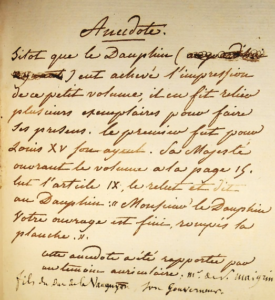 Anecdote.
Sitot que le Dauphin (
) eut achevé l'impression
de ce petit volume, il en fit relier
plusieurs exemplaires pour faire
ses presens. le premier fut pour
Louis XV son ayeul. Sa Majesté
ouvrant le volume a la page 15.
lut l'article IX, le relut et dit
au Dauphin: " Monsieur le Dauphin
votre ouvrage est fini, rompés la
planche ".
cette anecdote a été rapportée par
un temoin auriculaire. Mr de St Maigrin
fils du duc de la Vauguyon son Gouverneur.